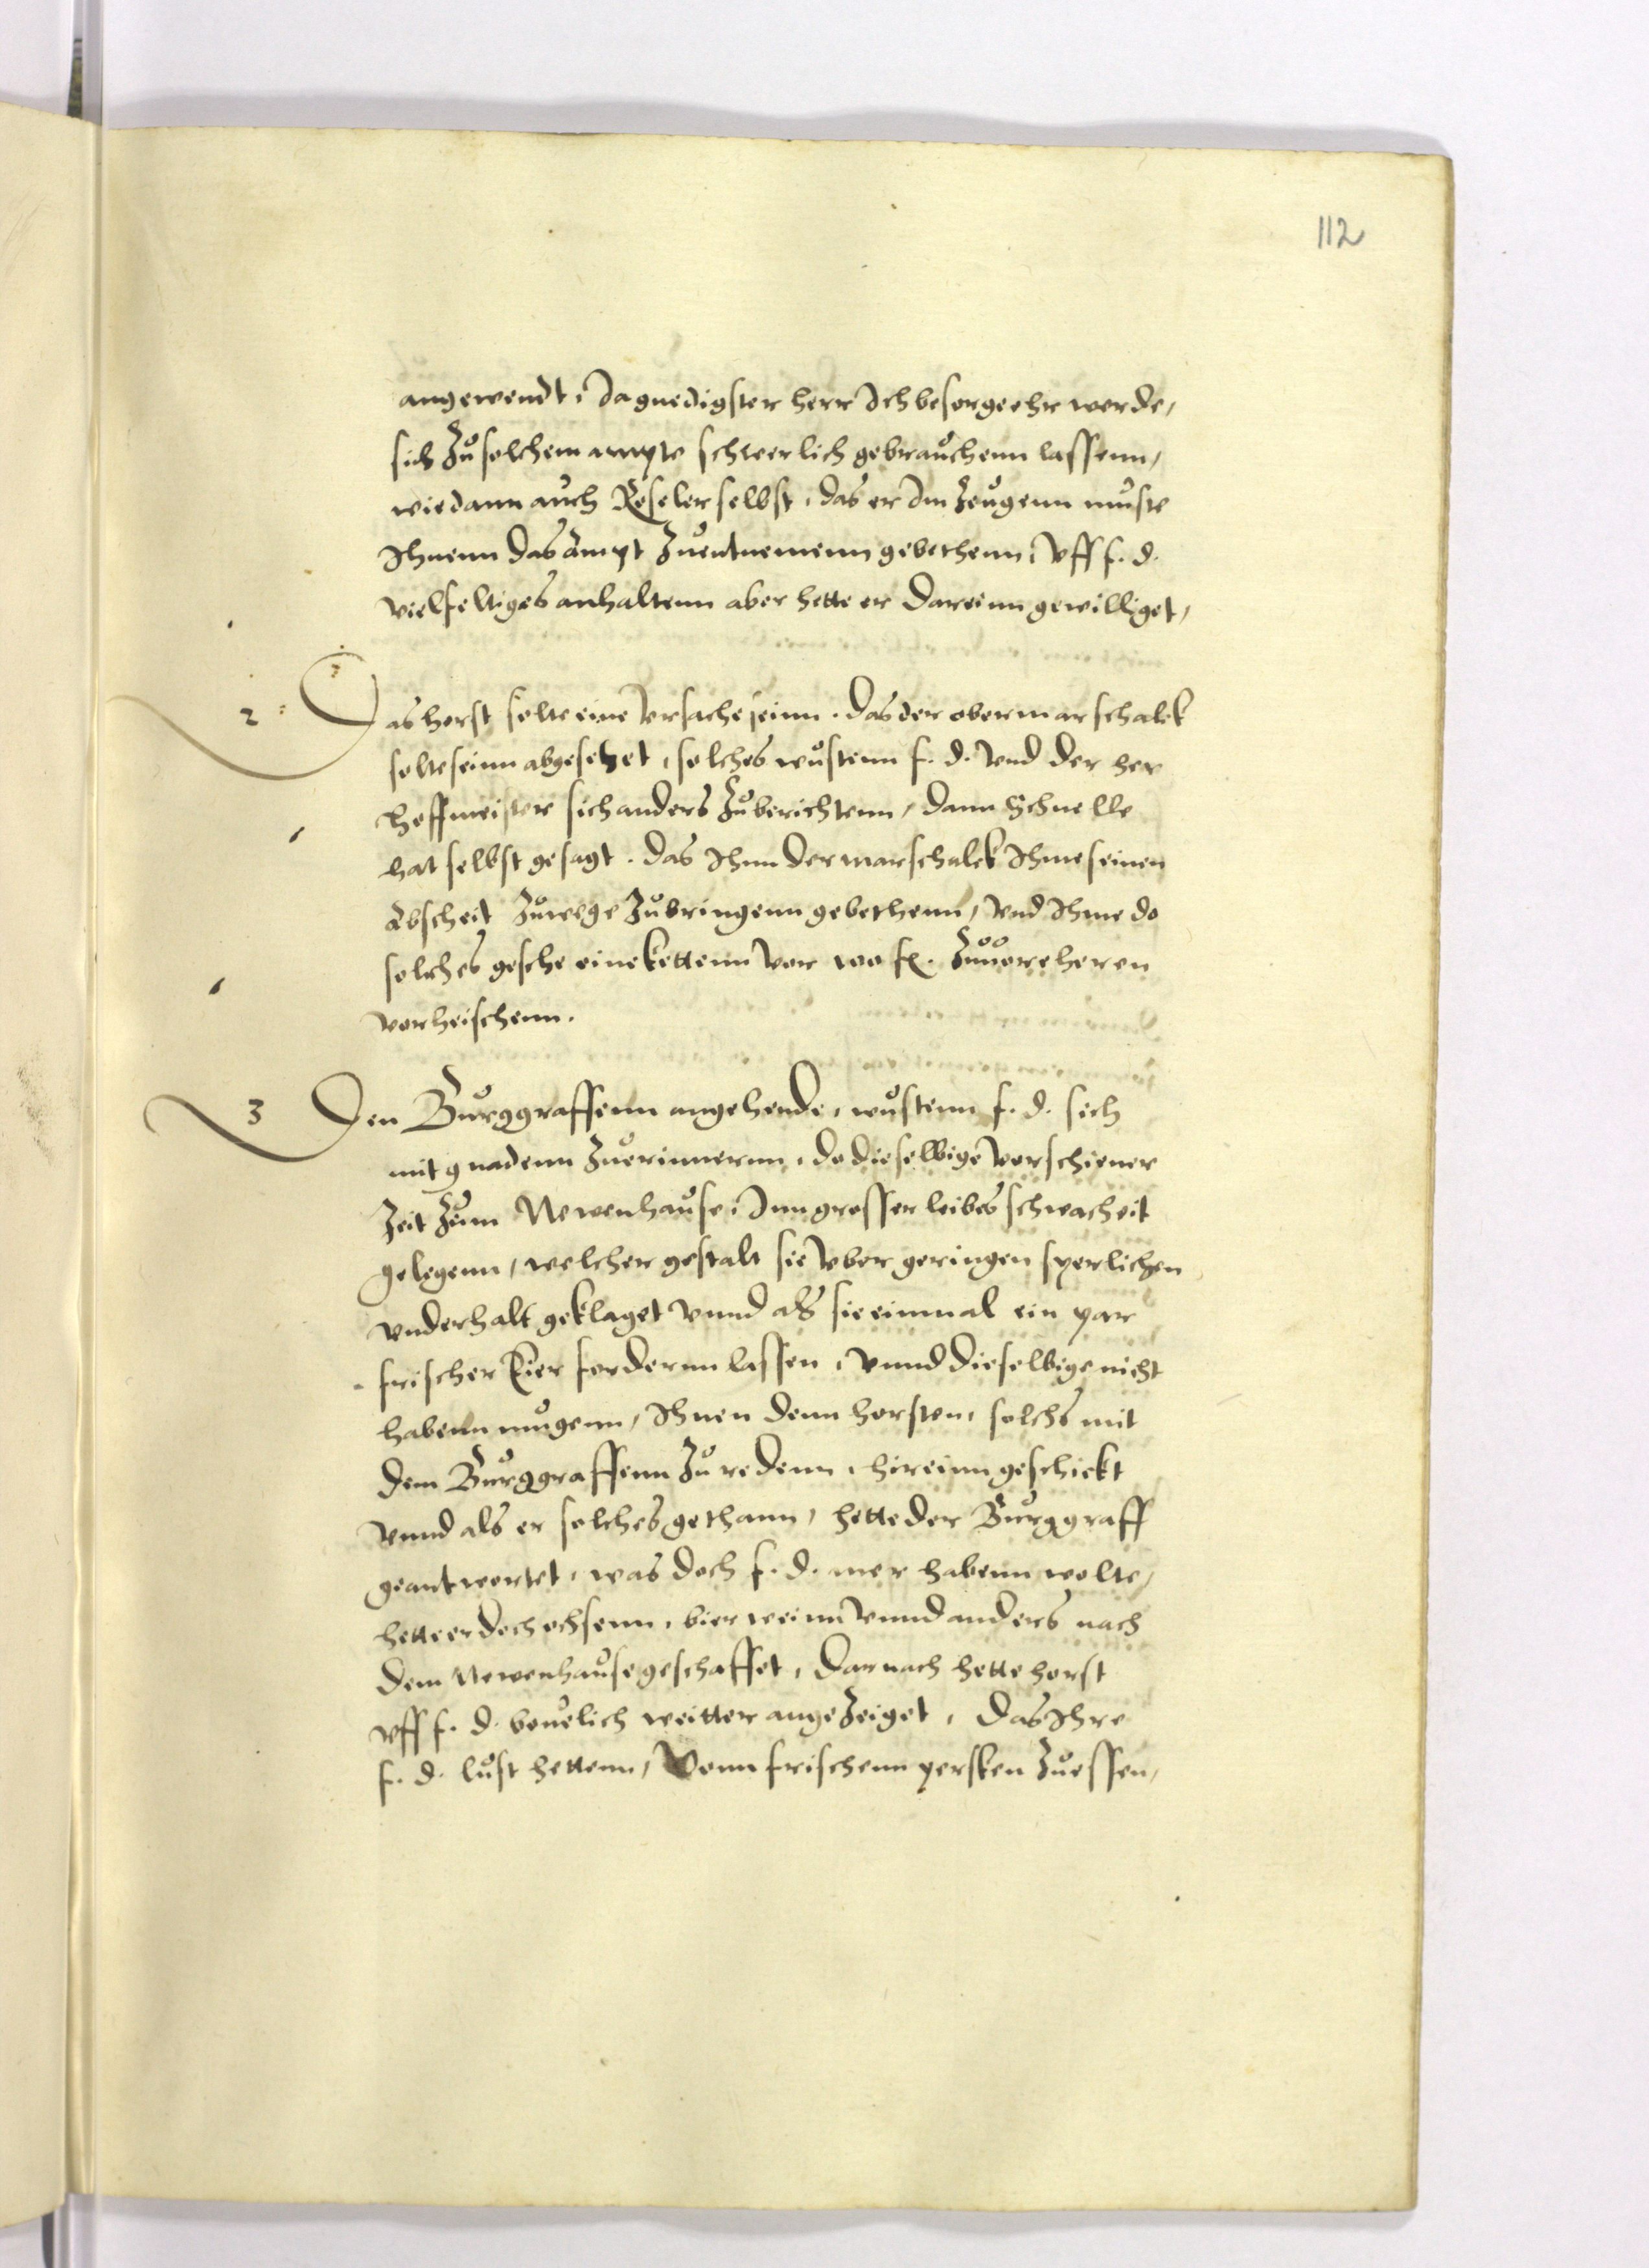 112
angewendt, Ja gnedigster herr Ich besorge ehr werde,
sich zu solchem ampte schwerlich gebrauchenn lassenn,
wie dann auch Roseler selbst, das er Im zeugenn muste
Ihnenn das ampt zuentnemenn gebethenn, Vff f. d.
vielfeltiges anhaltenn aber hette er dareinn gewilliget,
2 Das horst solte eine Vrsache seinn. das der obermarschalck
solte seinn abgesetzet, solches wustenn f. d. vnd der her
hoffmeister sich anders zuberichtenn, dann Schnelle
hat selbst gesagt. das Ihnn der marschalck Ihme seinen
abscheit zuwege zubringenn gebethenn, vnd Ihme do
solches geschehe eine kettenn vor 100 fl. zuuoreheren
vorheischenn.
3 Den Burggraffenn angehende, wustenn f. d. sich
mit gnadenn zuerinnernn, do dieselbige vorschiener
zeit zum Newenhause, Inn grosser leibes schwacheit
gelegenn, welcher gestalt sie vber geringen sperlichen
vnderhalt geklaget vnnd als sie einmal ein par
frischer Eier fordernn lassen, vnnd dieselbige nicht
habenn mugenn, Ihnen denn horsten, solchs mit
dem Burggraffenn zu redenn, hireinn geschickt
vnnd als er solches gethann, hette der Burggraff
geantwortet, was doch f. d. mer habenn wolte,
hette er doch ochsenn, bier weinn vnnd anders nach
dem Newenhause geschaffet, Darnach hette horst
vff f. d. beuelich weitter angezeiget, das Ihre
f. d. lust hettenn, Vonn frischenn persken zuessen,